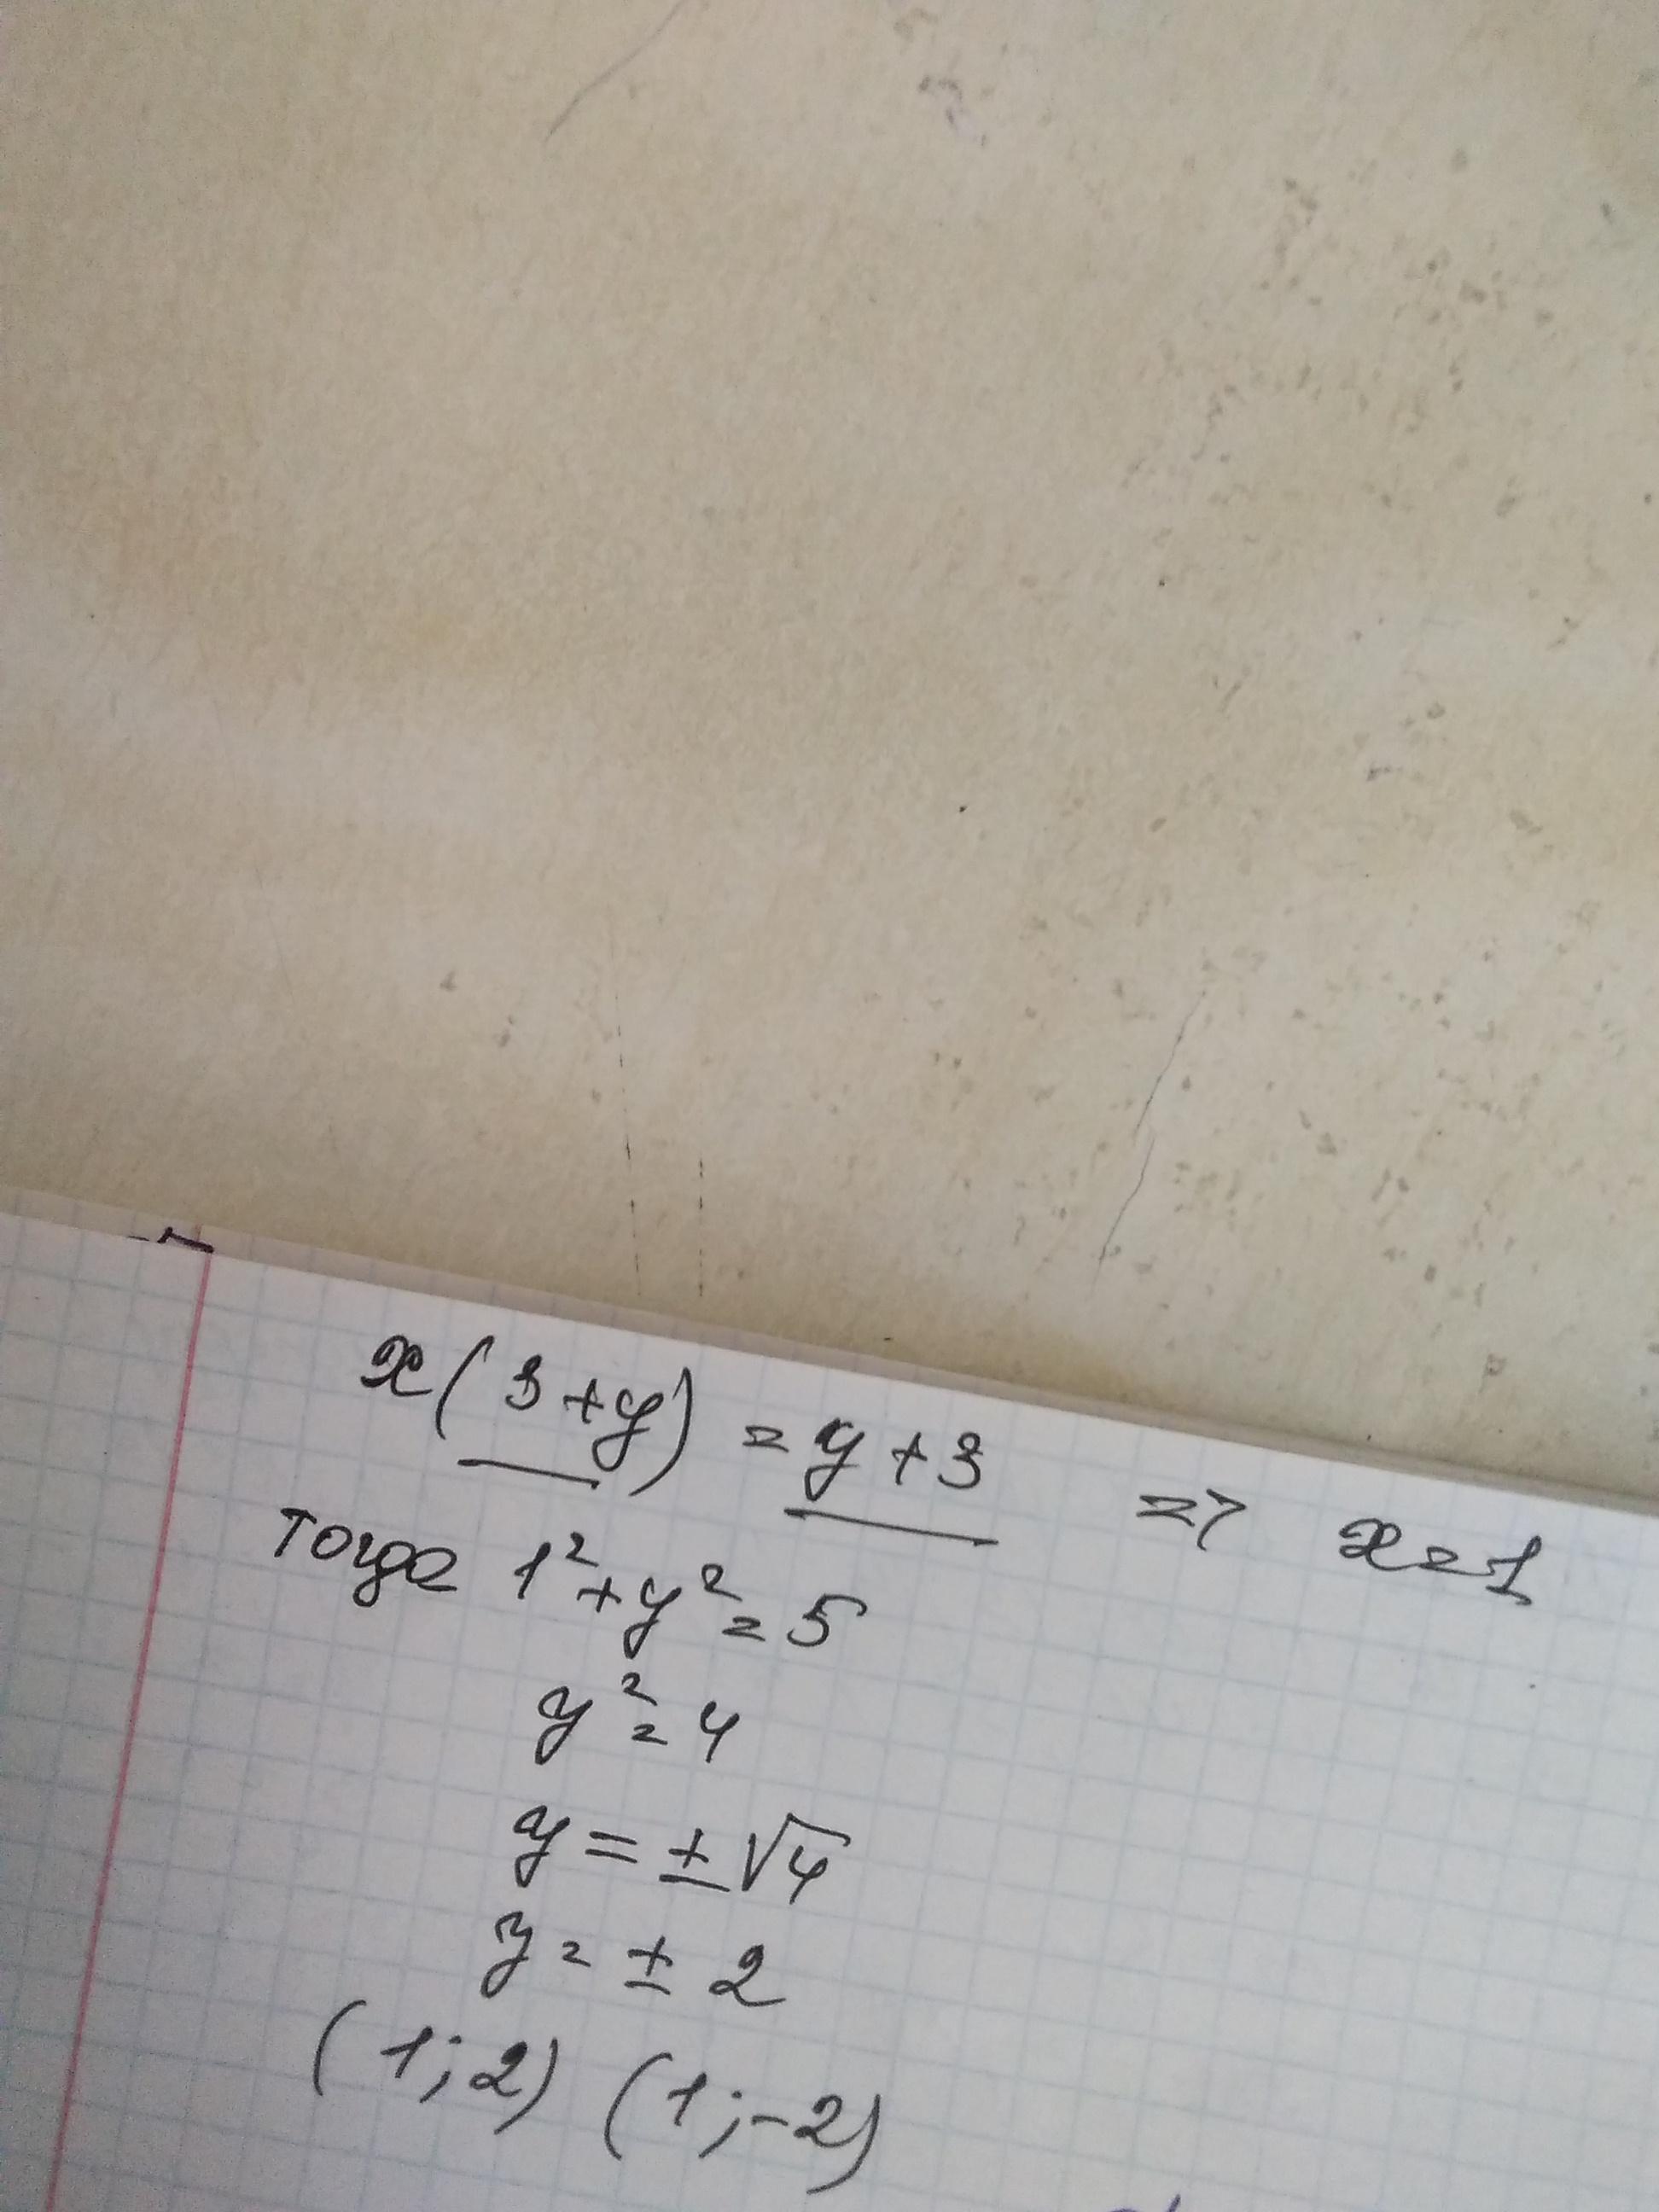 x(3+y) = y+3 => x=1
тогда 1²+y²=5
y²=4
y=±√4
y=±2
(1;2) (1;-2)